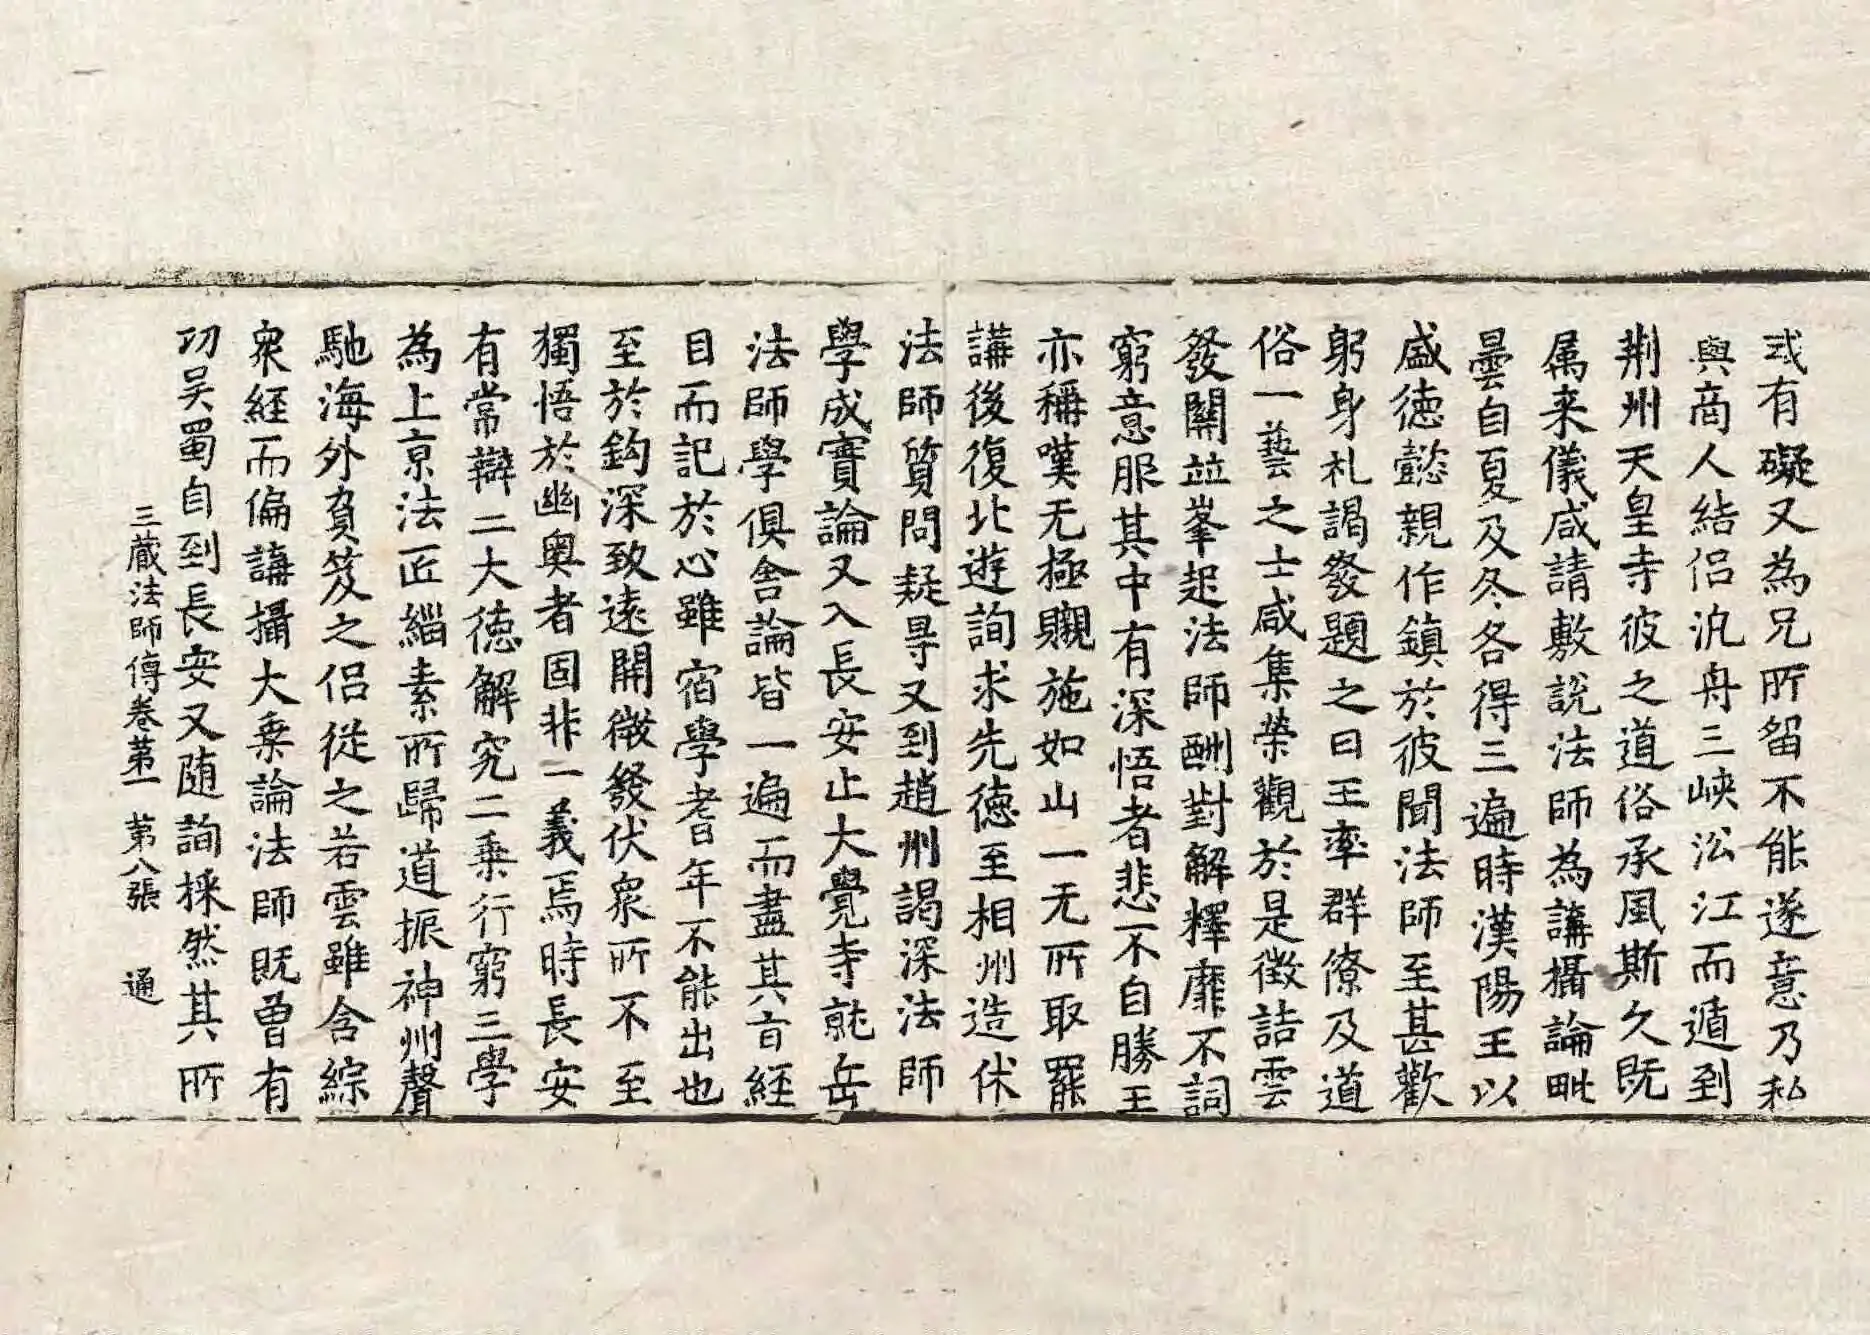 式有礙又為兄所留不能遂意乃私
與商人結侣汎舟三峽㳂江而遁到
荆州天皇寺彼之道俗承風斯久既
属来儀咸請敷說法師為講攝論毗
曇自夏及冬各得三遍時漢陽王以
盛徳懿親作鎮於彼聞法師至甚歡
躬身札謁發題之日王率群僚及道
俗一藝之士咸集榮觀於是徴詰雲
發關並峯起法師酬對解釋靡不詞
窮意服其中有深悟者悲不自勝王
亦稱嘆无極䞋施如山一无所取罷
講後復北遊詢求先徳至相州造休
法師質問疑㝵又到趙州謁深法師
學成實論又入長安止大覺寺就岳
法師學俱舍論皆一遍而盡其㫖經
目而記於心雖宿學耆年不能出也
至於鈎深致遠開微發伏衆所不至
獨悟於幽奥者固非一義焉時長安
有常辯二大徳解究二乗行窮三學
為上京法匠緇素所歸道振神州聲
馳海外負笈之侣從之若雲雖含綜
衆經而偏講攝大乗論法師既曽有
㓛吴蜀自到長安又随詢採然其所
三蔵法師傳卷第一 第八張 通